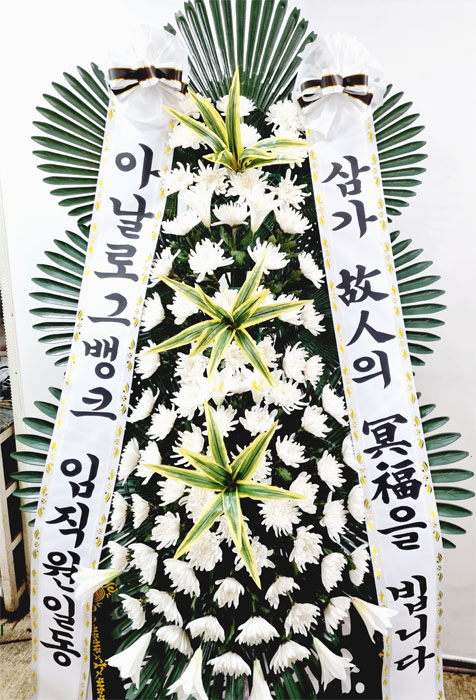 아날로그뱅크 임직원일동
삼가 故人의 冥福을 빕니다